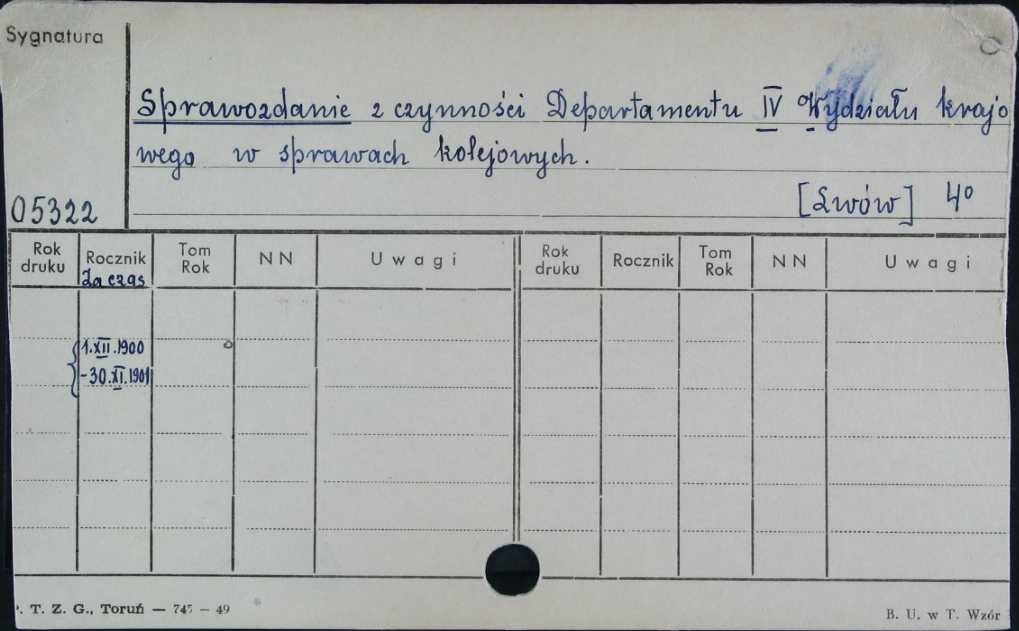 Sygnatura
Sprawozdanie z czynności Departamentu IV Wydziału krajo
wego w sprawach kolejowych.
[Lwów] 4º
05322
Rok druku Rocznik Za czas Tom Rok NN Uwagi Rok druku Rocznik Tom Rok NN Uwagi
1.XII.1900
-30.XI.1901
. T. Z. G., Toruń — 745 — 49
B. U. w T. Wzór